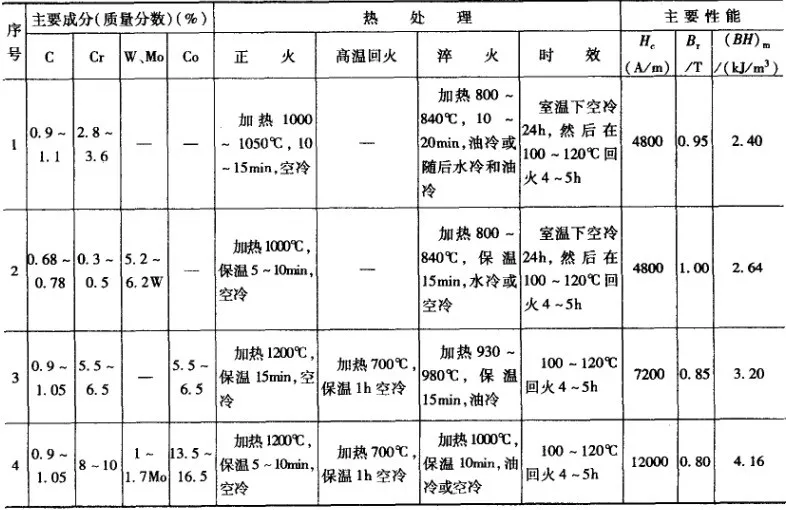 序号 主要成分(质量分数)(%) 热处理 主要性能
C Cr W、Mo Co 正火 高温回火 淬火 时效 Hc (A/m) Br /T (BH)m /(kJ/m³)
1 0.9~1.1 2.8~3.6 — — 加热 1000~1050℃, 10~15min,空冷 — 加热 800~840℃, 10~20min,油冷或随后水冷和油冷 室温下空冷24h,然后在100~120℃回火4~5h 4800 0.95 2.40
2 0.68~0.78 0.3~0.5 5.2~6.2W — 加热1000℃,保温5~10min,空冷 — 加热 800~840℃, 保温15min,水冷或空冷 室温下空冷24h,然后在100~120℃回火4~5h 4800 1.00 2.64
3 0.9~1.05 5.5~6.5 — 5.5~6.5 加热1200℃,保温15min,空冷 加热700℃,保温1h空冷 加热 930~980℃, 保温15min,油冷 100~120℃回火4~5h 7200 0.85 3.20
4 0.9~1.05 8~10 1~1.7Mo 13.5~16.5 加热1200℃,保温5~10min,空冷 加热700℃,保温1h空冷 加热1000℃,保温10min,油冷或空冷 100~120℃回火4~5h 12000 0.80 4.16